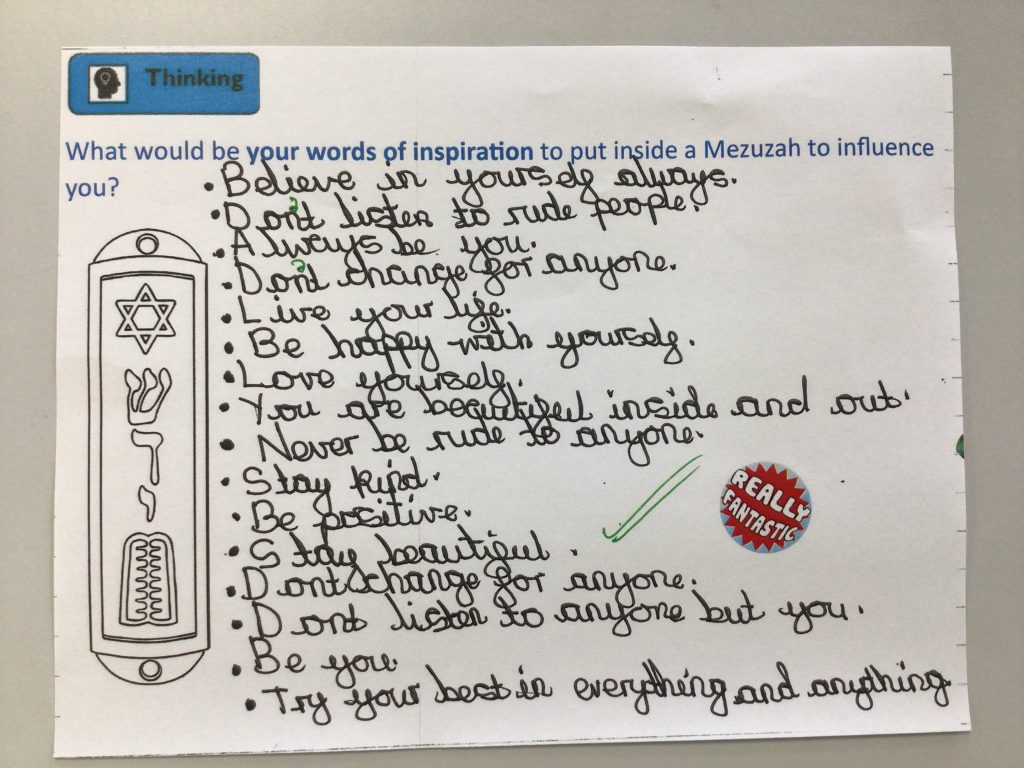 Thinking
What would be your words of inspiration to put inside a Mezuzah to influence
you?
• Believe in yourself always.
• Don't listen to rude people.
• Always be you.
• Don't change for anyone.
• Live your life.
• Be happy with yourself.
• Love yourself.
• You are beautiful inside and out.
• Never be rude to anyone.
• Stay kind.
• Be positive.
• Stay beautiful.
• Dont change for anyone.
• Dont listen to anyone but you.
• Be you.
• Try your best in everything and anything.
ש
ד
י
REALLY
FANTASTIC